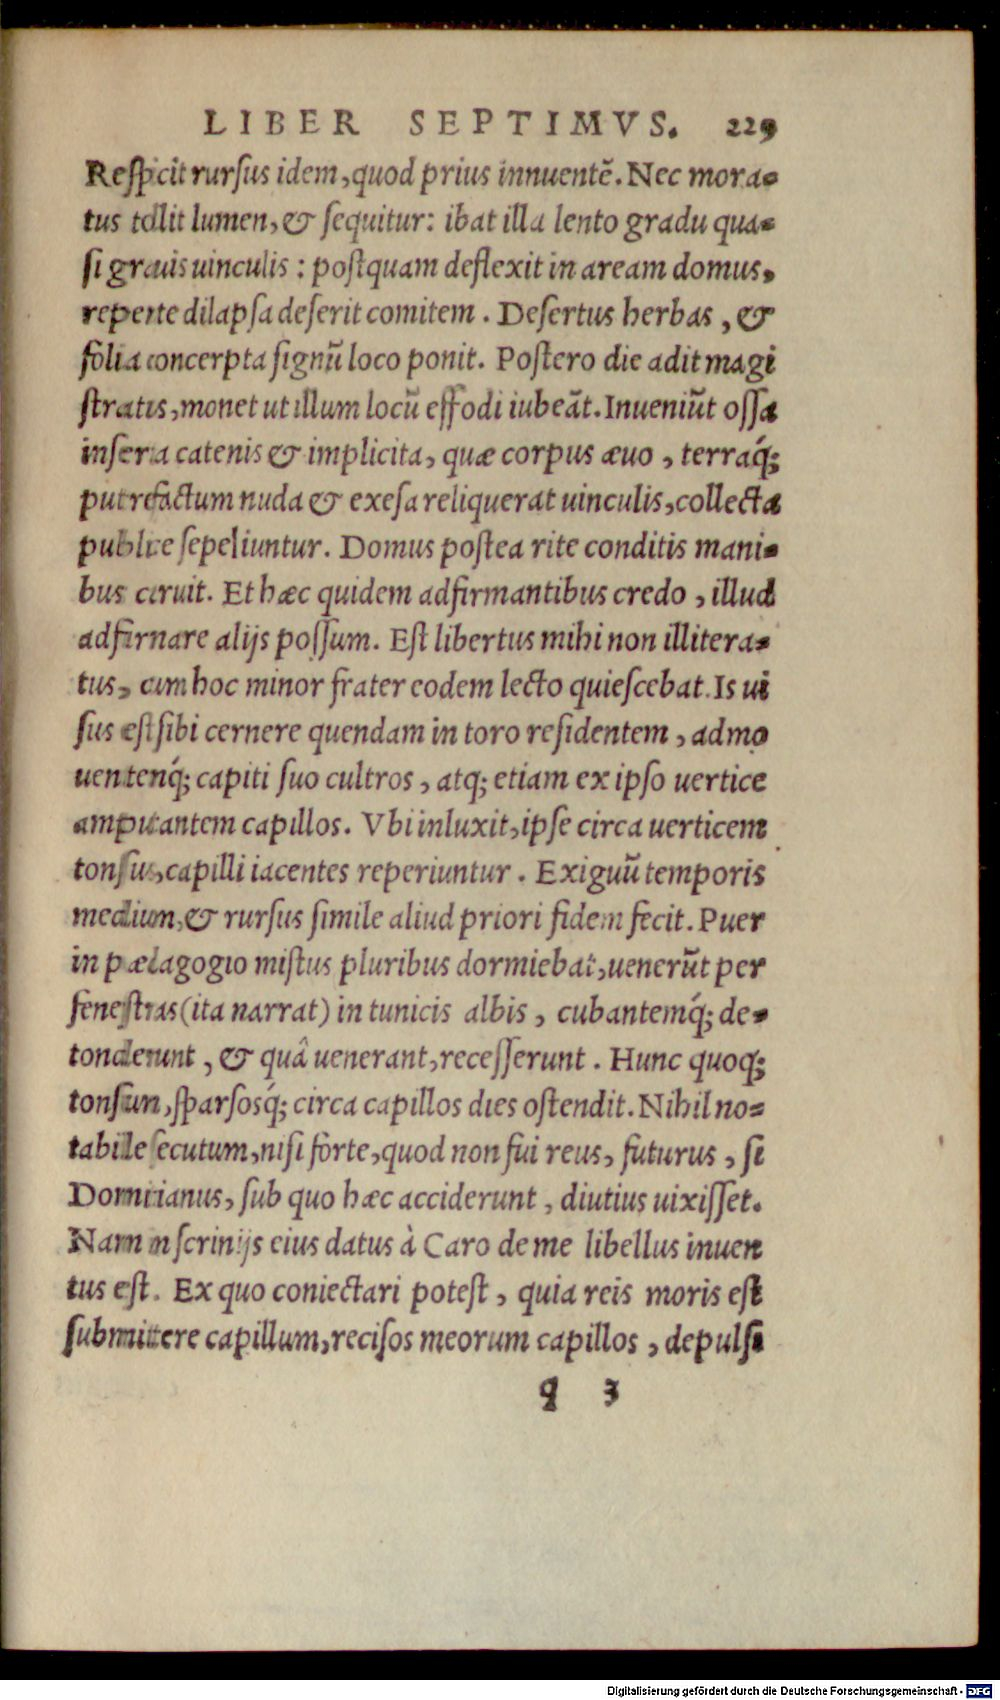 LIBER SEPTIMVS. 229
Respicit rursus idem, quod prius innuentē. Nec mora-
tus tollit lumen, & sequitur: ibat illa lento gradu qua-
si grauis uinculis: postquam deflexit in aream domus,
repente dilapsa deserit comitem. Desertus herbas, &
folia concerpta signū loco ponit. Postero die adit magi
stratus, monet ut illum locū effodi iubeāt. Inueniūt ossa
inserta catenis & implicita, quæ corpus æuo, terraq́;
putrefactum nuda & exesa reliquerat uinculis, collecta
publice sepeliuntur. Domus postea rite conditis mani-
bus caruit. Et hæc quidem adfirmantibus credo, illud
adfirmare alijs possum. Est libertus mihi non illitera-
tus, cum hoc minor frater eodem lecto quiescebat. Is ui
sus est sibi cernere quendam in toro residentem, admo
uentenq́; capiti suo cultros, atq; etiam ex ipso uertice
amputantem capillos. Vbi inluxit, ipse circa uerticem
tonsus, capilli iacentes reperiuntur. Exiguū temporis
medium, & rursus simile aliud priori fidem fecit. Puer
in pædagogio mistus pluribus dormiebat, uenerūt per
fenestras (ita narrat) in tunicis albis, cubantemq́; de-
tonderunt, & quâ uenerant, recesserunt. Hunc quoq;
tonsum, sparsosq́; circa capillos dies ostendit. Nihil no-
tabile secutum, nisi forte, quod non fui reus, futurus, si
Domitianus, sub quo hæc acciderunt, diutius uixisset.
Nam in scrinijs eius datus à Caro de me libellus inuen
tus est. Ex quo coniectari potest, quia reis moris est
submittere capillum, recisos meorum capillos, depulsi
q 3
Digitalisierung gefördert durch die Deutsche Forschungsgemeinschaft - DFG